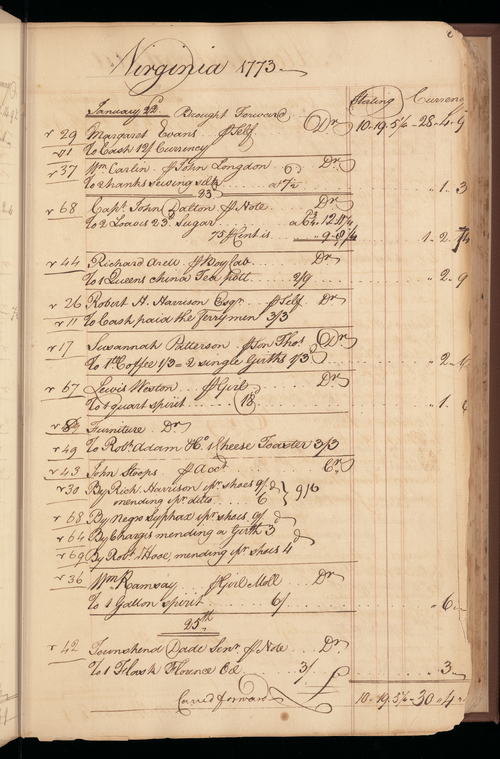 Virginia 1773
Sterling Currency
January 22d Brought Forward 10 19 5½ 28 4 9
29 Margaret Evans p Self Dr
71 To Cash 12/ Currency
37 Wm Carlin p John Longdon Dr
To 2 hanks sewing silk a 7½ 1 3
23
68 Capt John Dalton p Note Dr
To 2 Loaves Sugar
75 p Cent is 1 2
44 Richard Arell p Boy lab Dr
To 1 Queens China Tea pott 2/9 2 9
26 Robert H. Harrison Esqr p Self Dr
11 To Cash paid the Ferrymen 3/3
17 Susannah Patterson p Son Thos Dr
To 1 lb Coffee 1/3 = 2 single Girths 1/3 2
67 Lewis Weston p Girl Dr
To 1 quart spirit 1
Furniture Dr
49 To Robt Adam & Co 1 Cheese Toaster 3/3
43 John Stoops p Acct Cr
30 By Rich. Harrison 1 pr shoes 9/ } 9/6
mending 1 pr ditto 6
68 By Negro Syphax 1 pr shoes 9/
64 By Chargis mending a Girth 3d
69 By Robt T Hooe, mending 1 pr shoes 4d
36 Wm Ramsay p Girl Moll Dr
To 1 Gallon spirit 6/ 6
25th
42 Townshend Dade Senr p Note Dr
To 1 Flask Florence Oil 3/ 3
Carried forward £ 10 19 5½ 30 4